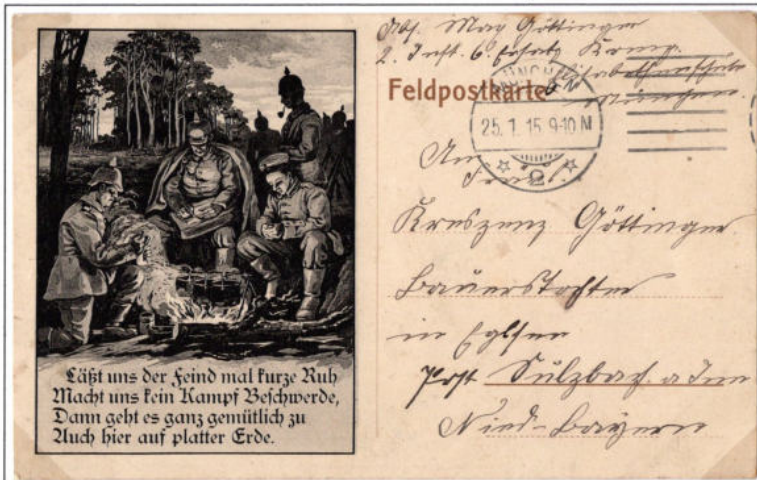 Läßt uns der Feind mal kurze Ruh
Macht uns kein Kampf Beschwerde,
Dann geht es ganz gemütlich zu
Auch hier auf platter Erde.
Abs. Max Göttinger
2. Inft. 6. Ersatz Komp.
München.
Feldpostkarte
MÜNCHEN
25.1.15 9-10 N
2
An
Kreszenz Göttinger
Bauerstochter
in Eglsee
Post Sulzbach a Inn
Nied-Bayern